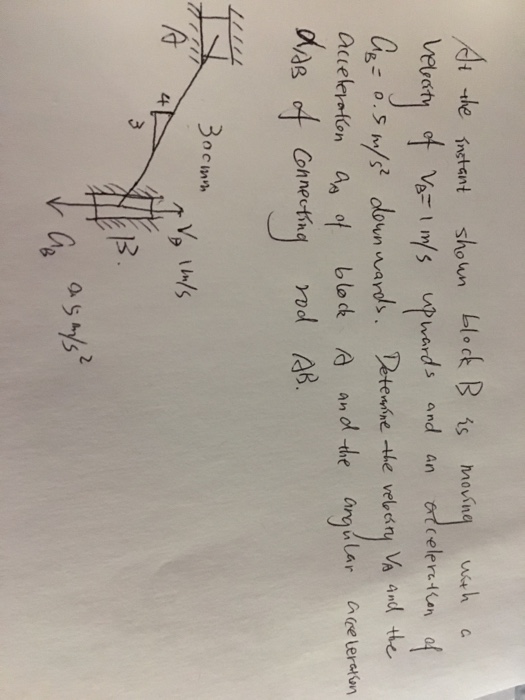 At the instant shown block B is moving with a
velocity of VB=1 m/s upwards and an acceleration of
aB= 0.5 m/s² downwards. Determine the velocity VA and the
acceleration aA of block A and the angular acceleration
αAB of connecting rod AB.
A
4
3
300mm
VB 1m/s
B.
aB 0.5 m/s²